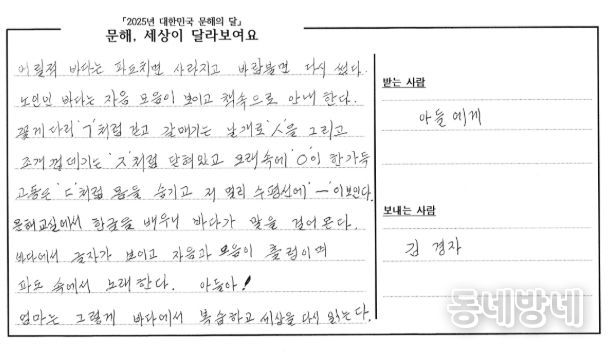 「2025년 대한민국 문해의 달」
문해, 세상이 달라보여요
어릴적 바다는 파도치면 사라지고 바람불면 다시 썼다.
노인인 바다는 자음 모음이 보이고 책속으로 안내 한다.
꽃게 다리 'ㄱ'처럼 걷고 갈매기는 날개로 'ㅅ'을 그리고
조개 껍데기는 'ㅈ'처럼 닫혀있고 모래속에 'ㅇ'이 한가득
고동은 'ㄷ'처럼 몸을 숨기고 저 멀리 수평선에 'ㅡ'이보인다.
문해교실에서 한글을 배우니 바다가 말을 걸어 온다.
바다에서 글자가 보이고 자음과 모음이 출렁이며
파도 속에서 노래한다. 아들아!
엄마는 그렇게 바다에서 복습하고 세상을 다시 읽는다.
받는 사람
아들에게
보내는 사람
김 경자
동네방네